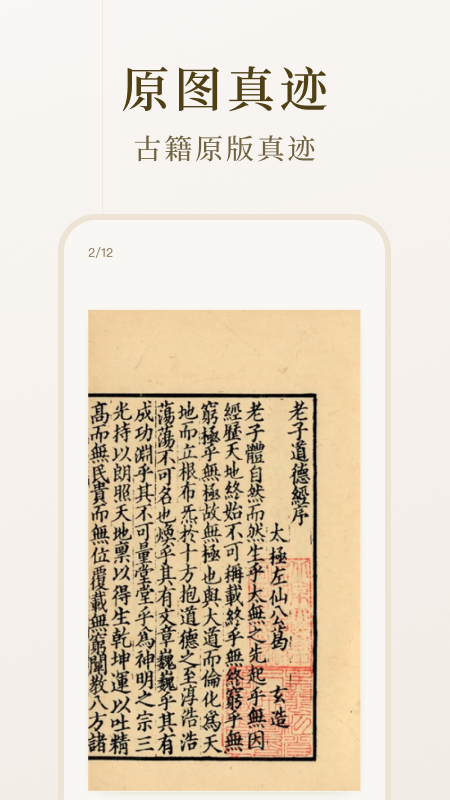 原图真迹
古籍原版真迹
2/12
老子道德經序
太極左仙公葛　玄造
老子體自然而然生乎太無之先起乎無因
經歷天地終始不可稱載終乎無終窮乎無
窮極乎無極故無極也與大道而倫化爲天
地而立根布炁於十方抱道德之至淳浩浩
蕩蕩不可名也煥乎其有文章巍巍乎其有
成功淵乎其不可量堂堂乎爲神明之宗三
光持以朗照天地稟以得生乾坤運以吐精
高而無民貴而無位覆載無窮闡教八方諸